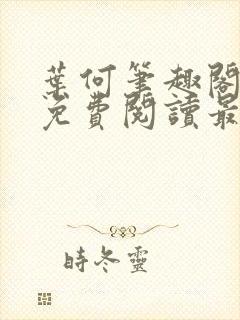 葉何筆趣閣
免費閱讀最
時冬靈